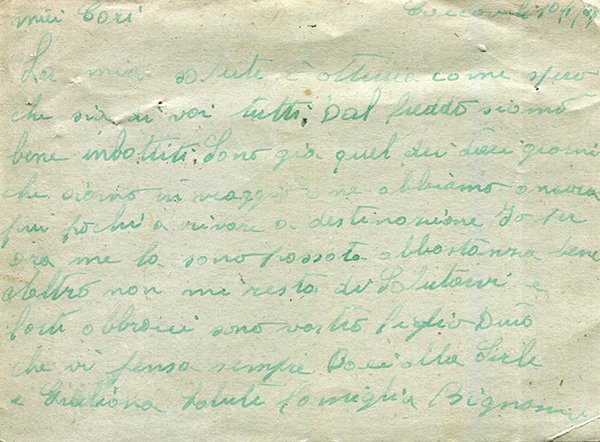 miei Cari
La mia salute è ottima come spero
che sia di voi tutti, Dal freddo siamo
bene inbottiti, Sono già quel dei dieci giorni
che siamo in viaggio e ne abbiamo ancora
piu pochi a rivare a destinazione Io per
ora me la sono passata abbastanza bene
altro non mi resta di Salutarvi e
forti abbracci sono vostro figlio Dino
che vi pensa sempre Baci alla
e Graliana Salute famiglia